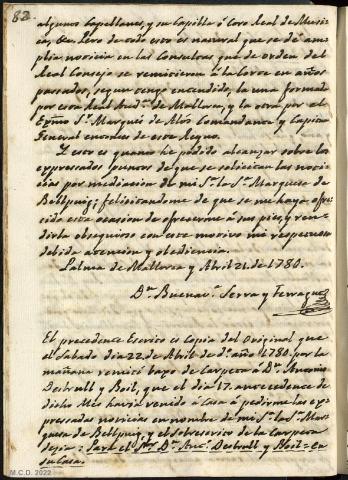 82
algunos Capellanes, y su Capilla ó Coro Real de Musi-
ca, &c. Pero de todo esto es natural que se dé am-
plia noticia en las Consultas que de orden del
Real Consejo se remitieron á la Corte en años
pasados, segun tengo entendido, la una formada
por esta Real Aud.ª de Mallorca, y la otra por el
Exmo S.r Marques de Alós Comandante y Capitan
General entonces de este Reyno.
Y esto es quanto he podido alcanzar sobre los
expresados puntos de que se solicitan las noti-
cias por mediacion de mi S.ra la S.ra Marquesa de
Bellpuig; felicitandome de que se me haya ofre-
cido esta ocasion de ofrecerme á sus pies, y ren-
dirla obsequioso con este motivo mi respetuosa
debida atencion y obediencia.
Palma de Mallorca y Abril 21. de 1780.
D.n Buenav.ª Serra y Ferragut
El precedente Escrito es Copia del Original que
el Sabado dia 22. de Abril de d.º año 1780. por la
mañana remití baxo de Carpeta á D.n Antonio
Desbrull y Boil, que el dia 17. antecedente de
dicho Mes havia venido á Casa á pedirme las ex-
presadas noticias en nombre de mi S.ra la S.ra Mar-
quesa de Bellpuig, y el sobrescrito de la Carpeta
dezia: Para el S.or D.n Ant.º Desbrull y Boil = En
su Casa.
M.C.D. 2022